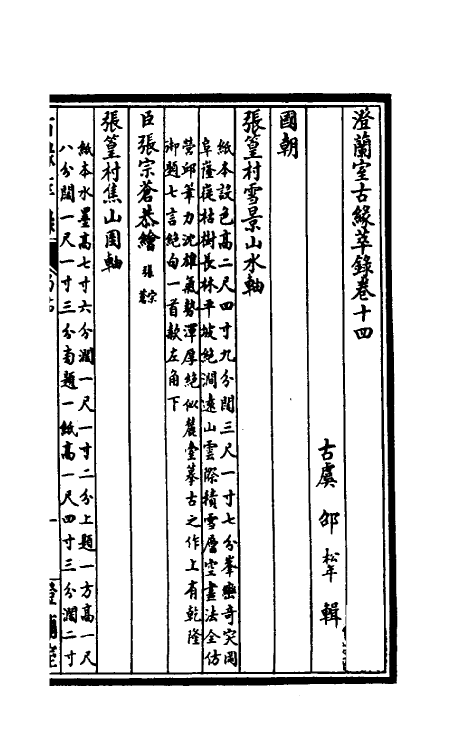 澄蘭室古緣萃錄卷十四
古虞 邵松年 輯
國朝
張篁村雪景山水軸
紙本設色高二尺四寸九分闊三尺一寸七分峯巒奇突岡
阜蔭蓰枯樹長林平坡絕澗遠山雲際積雪層空畫法全仿
營邱筆力沈雄氣勢渾厚絕似麓臺摹古之作上有乾隆
御題七言絕句一首款左角下
臣張宗蒼恭繪 張宗蒼
張篁村焦山圖軸
紙本水墨高七寸六分濶一尺一寸二分上題一方高一尺
八分闊一尺一寸三分南題一紙高一尺四寸三分濶二寸